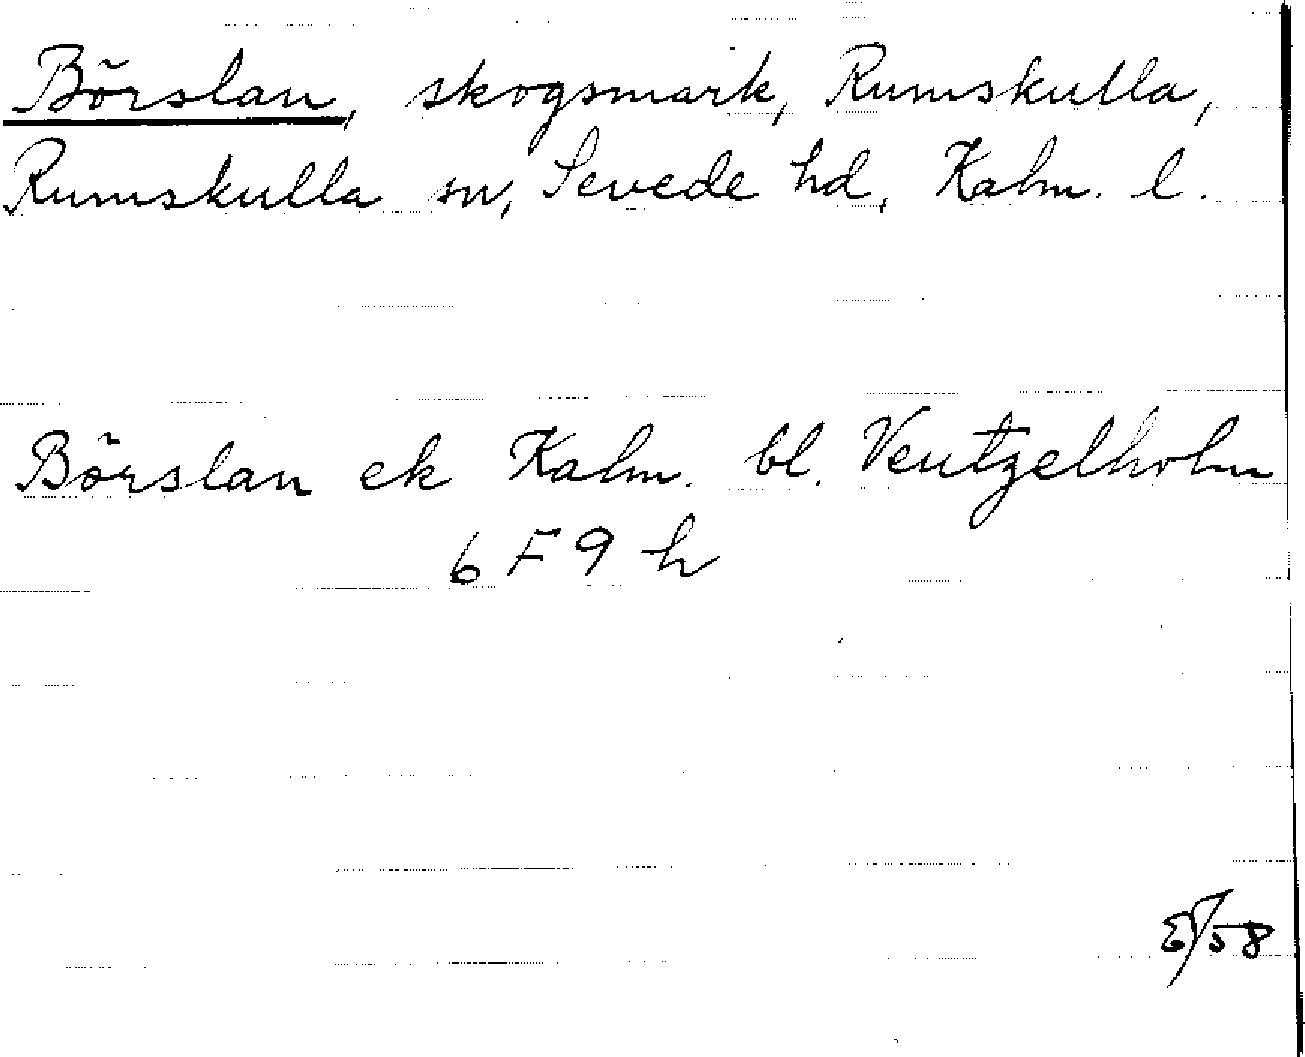 Börslan, skogsmark, Rumskulla,
Rumskulla sn, Sevede hd, Kalm. l.
Börslan ek Kalm. bl. Ventzelholm
6 F 9 h
/58